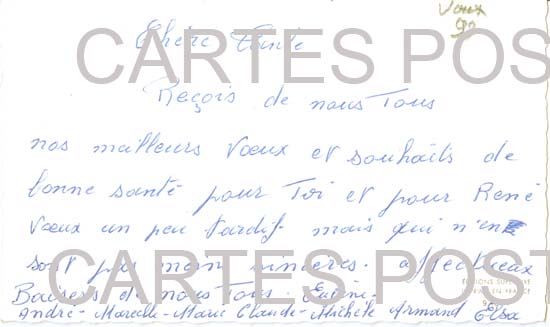 Voeux
90
Chère Tante
CARTES POS
Reçois de nous Tous
nos meilleurs Voeux et souhaits de
bonne santé pour Toi et pour René
Voeux un peu tardif mais qui n'en
CARTES POST
sont pas moin sincères. affectueux
Baisers de nous Tous.
André - Marcelle - Marie Claude - Michèle Armand Elsa